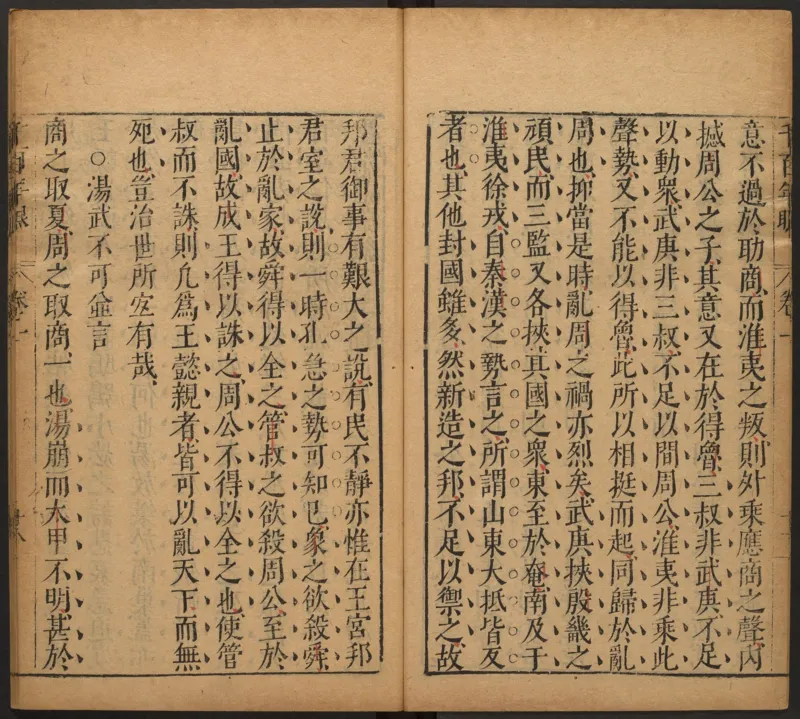 千百年眼 卷二
意不過於助商而淮夷之叛則外乘應商之聲內
撼周公之子其意又在於得魯三叔非武庚不足
以動衆武庚非三叔不足以間周公淮夷非乘此
聲勢又不能以得魯此所以相挺而起同歸於亂
周也抑當是時亂周之禍亦烈矣武庚挾殷畿之
頑民而三監又各挾其國之衆東至於奄南及于
淮夷徐戎自秦漢之勢言之所謂山東大抵皆反
者也其他封國雖多然新造之邦不足以禦之故
邦君御事有艱大之說有民不靜亦惟在王宮邦
君室之說則一時孔急之勢可知已象之欲殺舜
止於亂家故舜得以全之管叔之欲殺周公至於
亂國故成王得以誅之周公不得以全之也使管
叔而不誅則凡爲王懿親者皆可以亂天下而無
死也豈治世所宜有哉
○湯武不可並言
商之取夏周之取商一也湯崩而太甲不明甚於
千百年眼 卷二